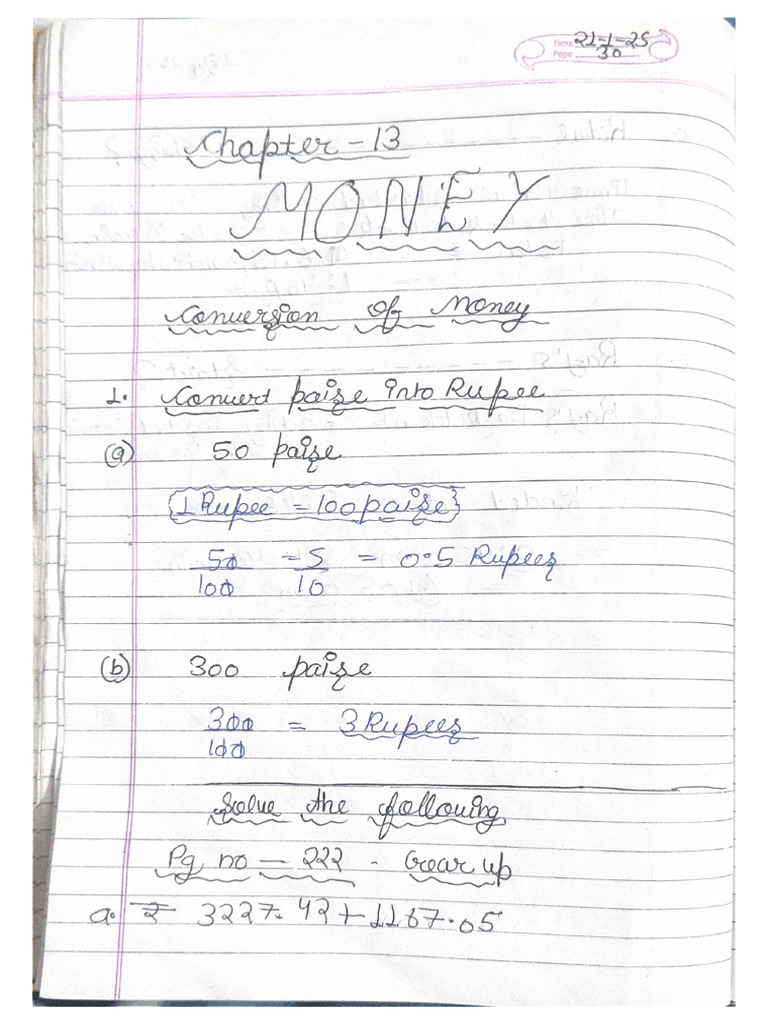 Date 21-1-25
Page 30
Chapter - 13
MONEY
Conversion of Money
1. Convert paise into Rupee
(a) 50 paise
{1 Rupee = 100 paise}
50/100 = 5/10 = 0.5 Rupees
(b) 300 paise
300/100 = 3 Rupees
Solve the following
Pg no - 222 - Gear up
a. ₹ 3227.42 + 1167.05